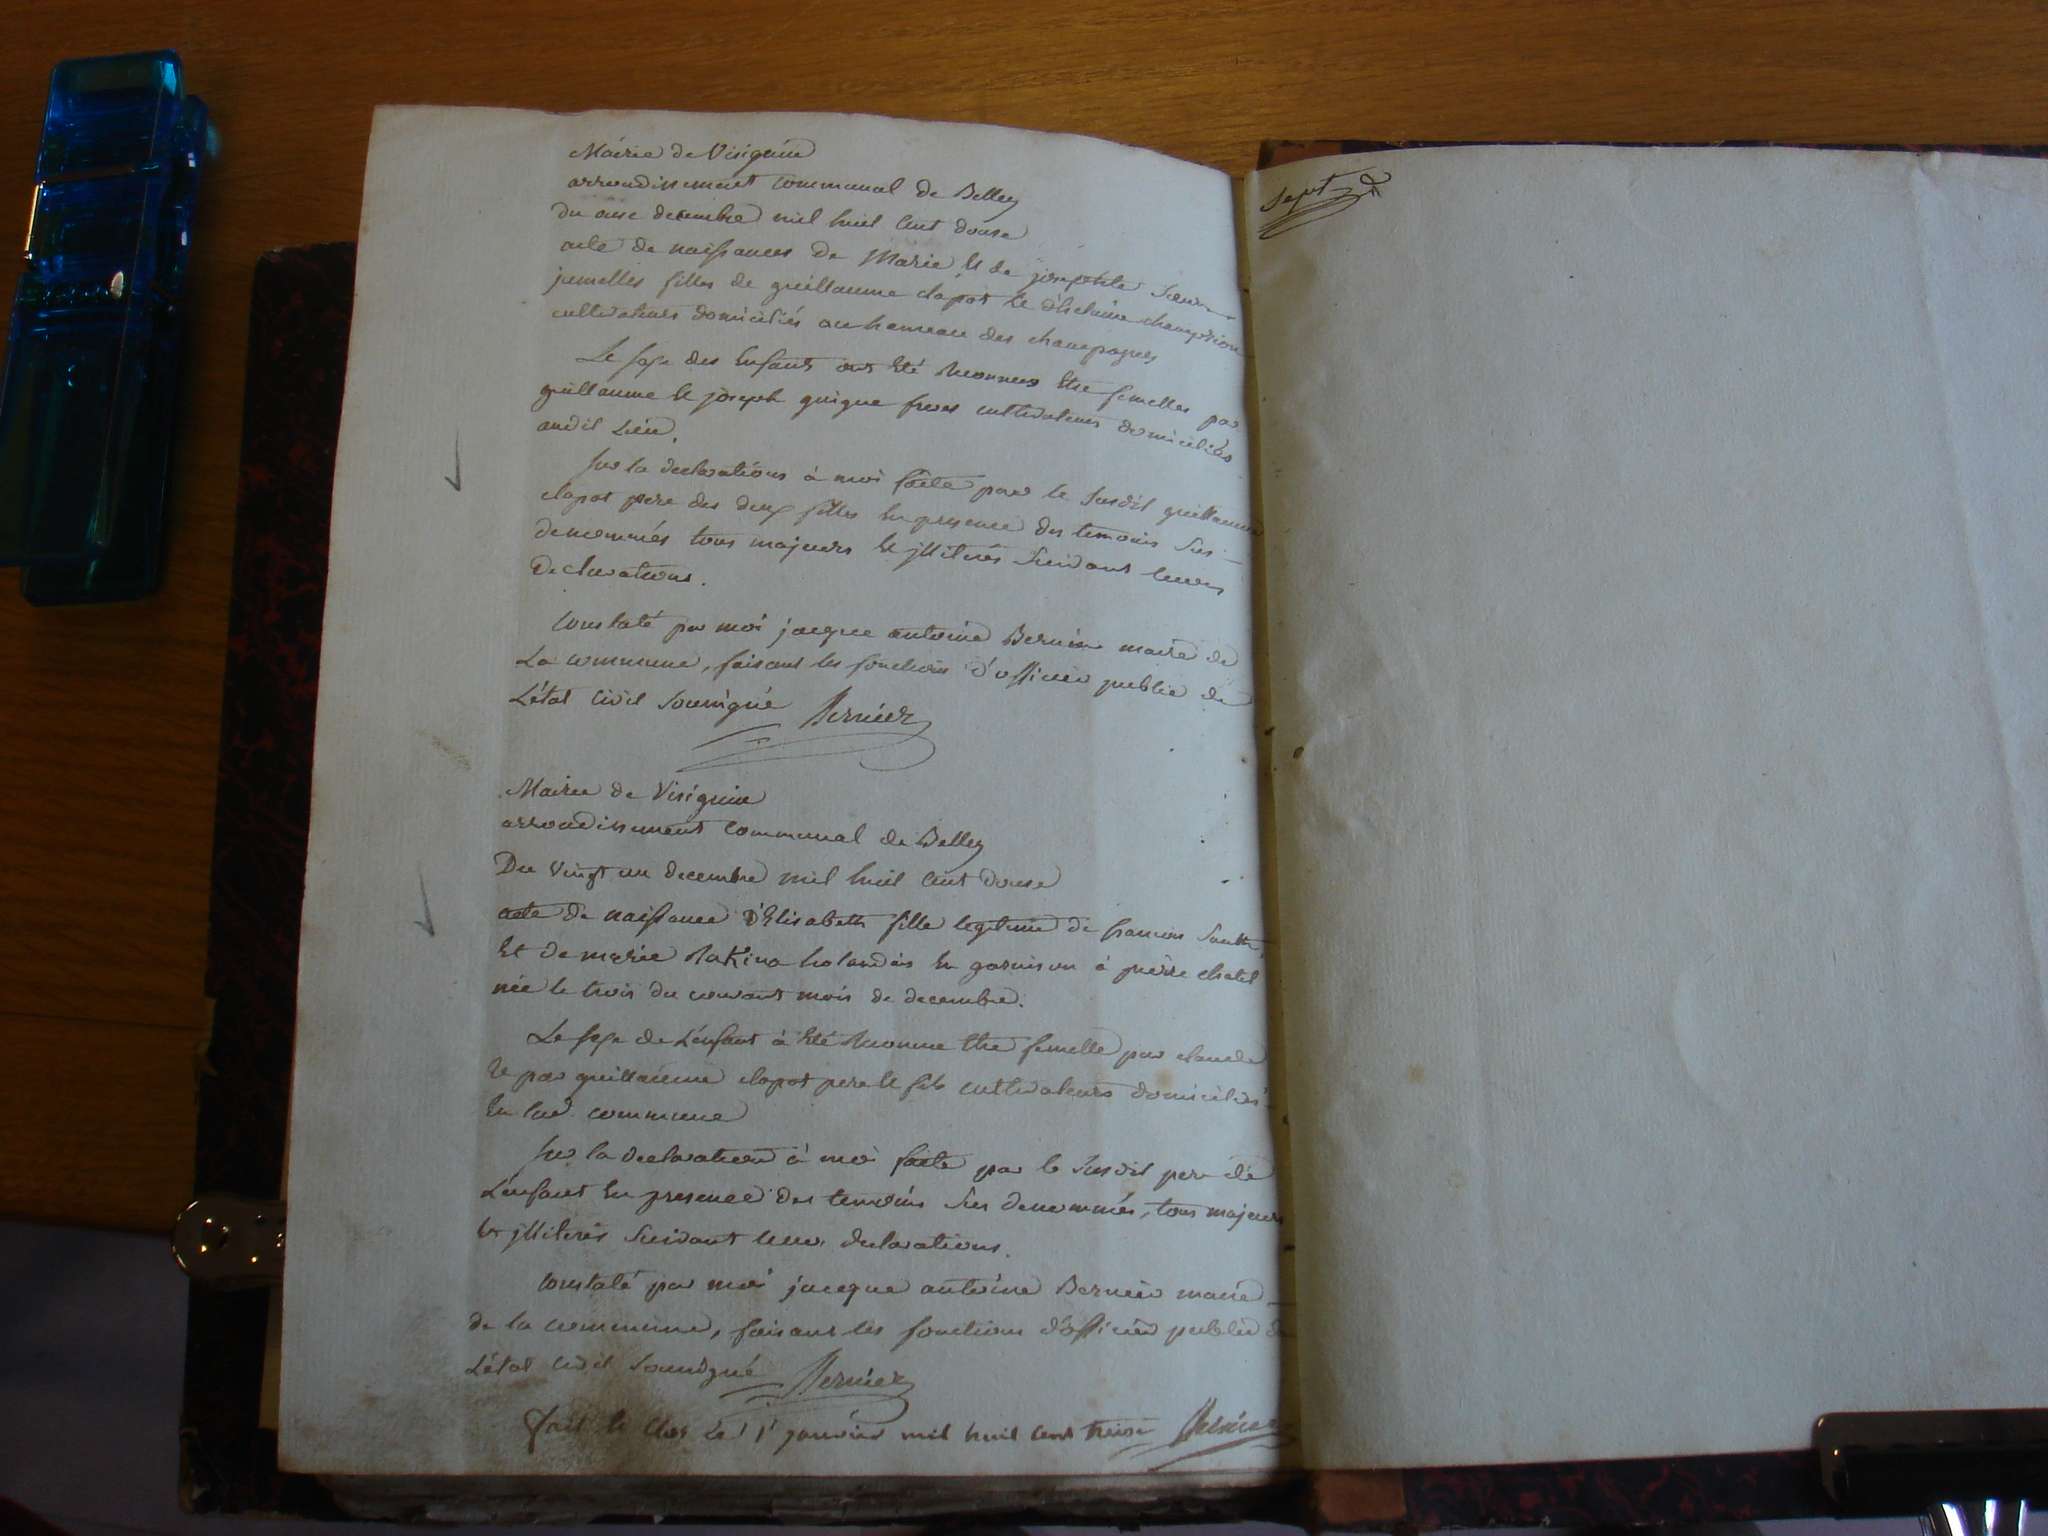 Mairie de Virignin
arrondissement communal de Belley
du onse decembre mil huit cent douse
acte de naissances de Marie et de josephte sœurs
jumelles filles de guillaume clapot et d'helaine champion
cultivateurs domiciliés au hameau des champagnes
Le sexe des enfants ont été reconnus etre femelles par
guillaume et joseph guigue freres cultivateurs domiciliés
audit Lieu.
sur la declarations à moi faite par le susdit guillaume
clapot pere des deux filles en presence des temoins sus
denommés tous majeurs et illiterés suivant leurs
declarations.
constaté par moi jacque antoine Bernier maire de
La commune, faisant les fonctions d'officier public de
L'état civil soussigné Bernier
Mairie de Virignin
arrondissement communal de Belley
Du vingt un decembre mil huit cent douse
acte de naissance d'Elisabeth fille legitime de francois
et de marie holandais en garnison à pierre chatel
née le trois du courant mois de decembre.
Le sexe de L'enfant à été reconnu etre femelle par claude
et par guillaume clapot pere et fils cultivateurs domiciliés
en commune
sur la declaration à moi faite par le susdit pere de
L'enfant en presence des temoins sus denommés, tous majeurs
et illiterés suivant leurs declarations.
constaté par moi jacque antoine Bernier maire
de la commune, faisant les fonctions d'officier public de
L'état civil soussigné Bernier
fait et clos Le 1er janvier mil huit cent treise Bernier
Sept